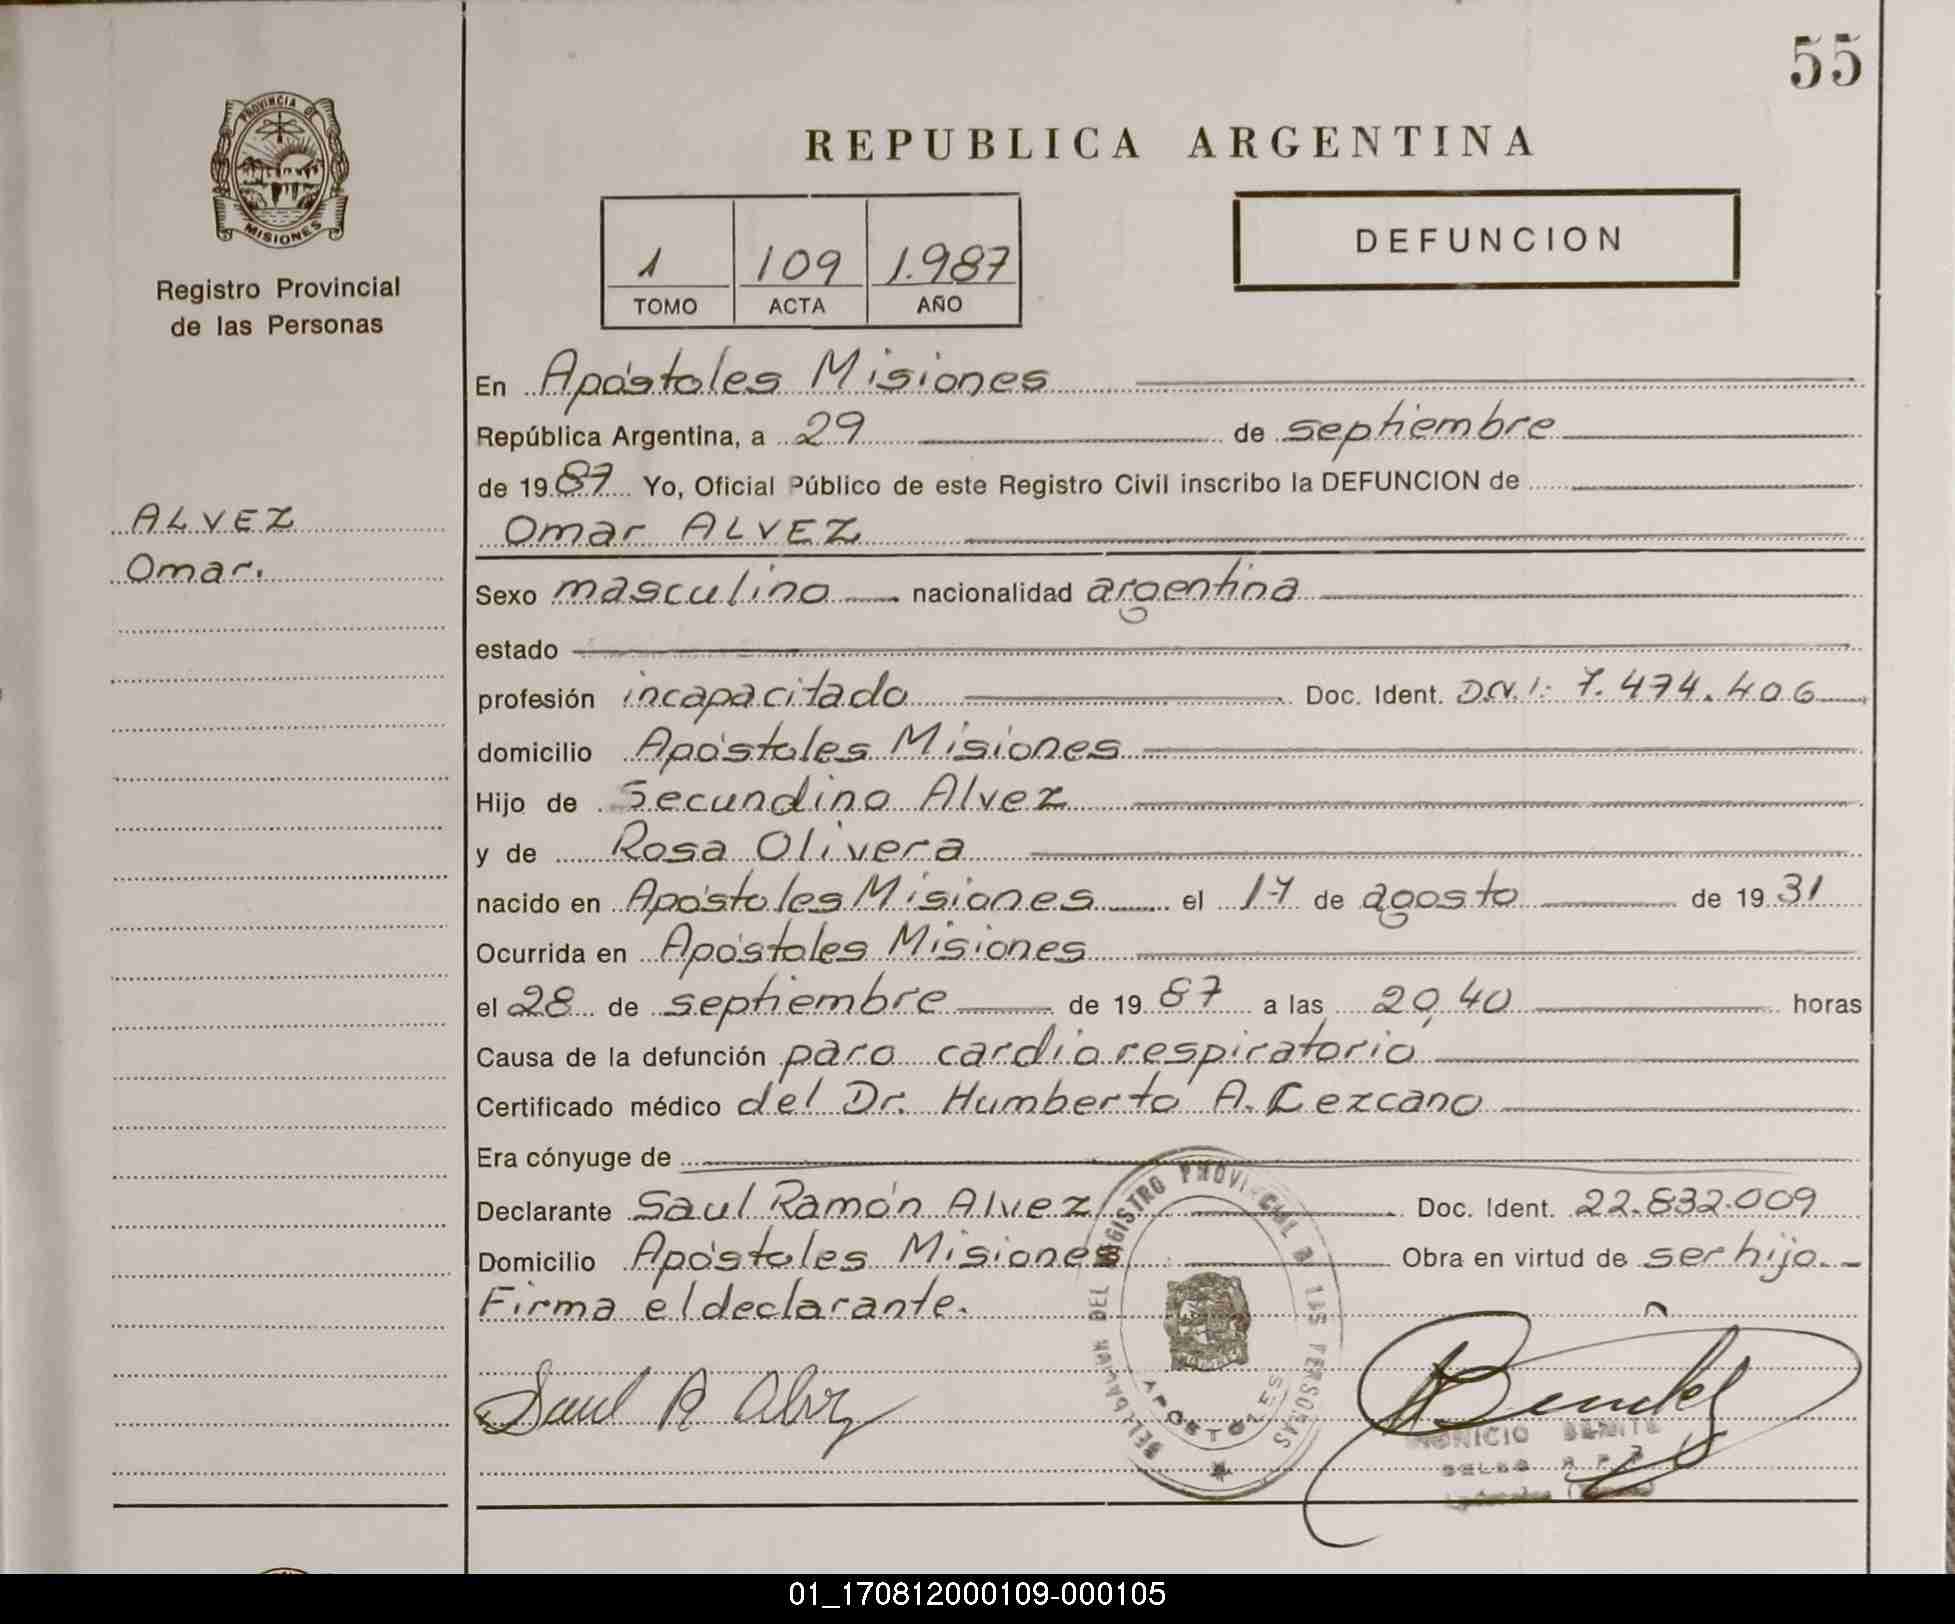 55
PROVINCIA DE
MISIONES
Registro Provincial
de las Personas
ALVEZ
Omar.
REPUBLICA ARGENTINA
1 109 1.987
TOMO ACTA AÑO
DEFUNCION
En Apóstoles Misiones
República Argentina, a 29 de septiembre
de 1987 Yo, Oficial Público de este Registro Civil inscribo la DEFUNCION de
Omar ALVEZ
Sexo masculino nacionalidad argentina
estado
profesión incapacitado Doc. Ident. D.N.I: 7.474.406
domicilio Apóstoles Misiones
Hijo de Secundino Alvez
y de Rosa Olivera
nacido en Apóstoles Misiones el 17 de agosto de 1931
Ocurrida en Apóstoles Misiones
el 28 de septiembre de 1987 a las 20,40 horas
Causa de la defunción paro cardiorespiratorio
Certificado médico del Dr. Humberto A. Lezcano
Era cónyuge de
Declarante Saul Ramón Alvez Doc. Ident. 22.832.009
Domicilio Apóstoles Misiones Obra en virtud de ser hijo.-
Firma el declarante.
Saul R Alvz
REGISTRO PROVINCIAL DE LAS PERSONAS
APOSTOLES
01_170812000109-000105